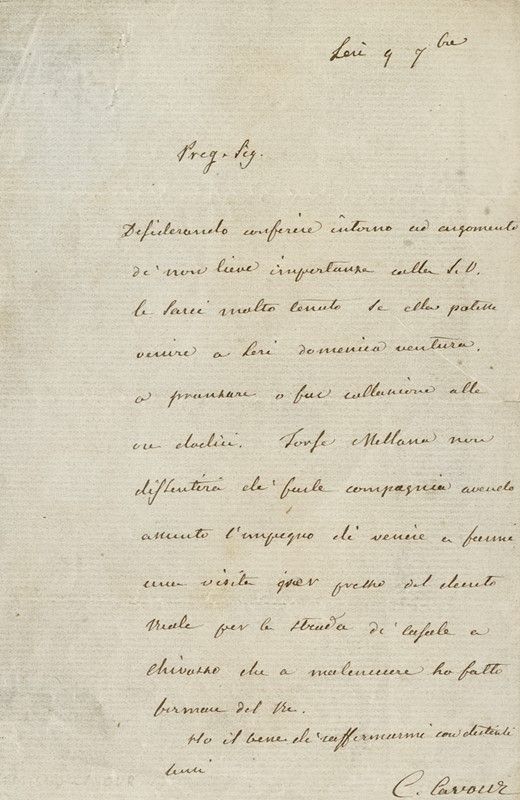 Leri 9 7bre
Preg. Sig.
Desiderando conferire intorno ad argomento
di non lieve importanza colla S. V.
le sarei molto tenuto se ella potesse
venire a Leri domenica ventura,
a pranzare o far collazione alle
ore dodici. Forse Mellana non
dissentirà di farle compagnia avendo
assunto l'impegno di venire a farmi
una visita prezzo del decreto
reale per la strada di Casale a
Chivasso che a malincuore ho fatto
firmare dal Re.
Ho il bene di raffermarmi con distinti
C. Cavour